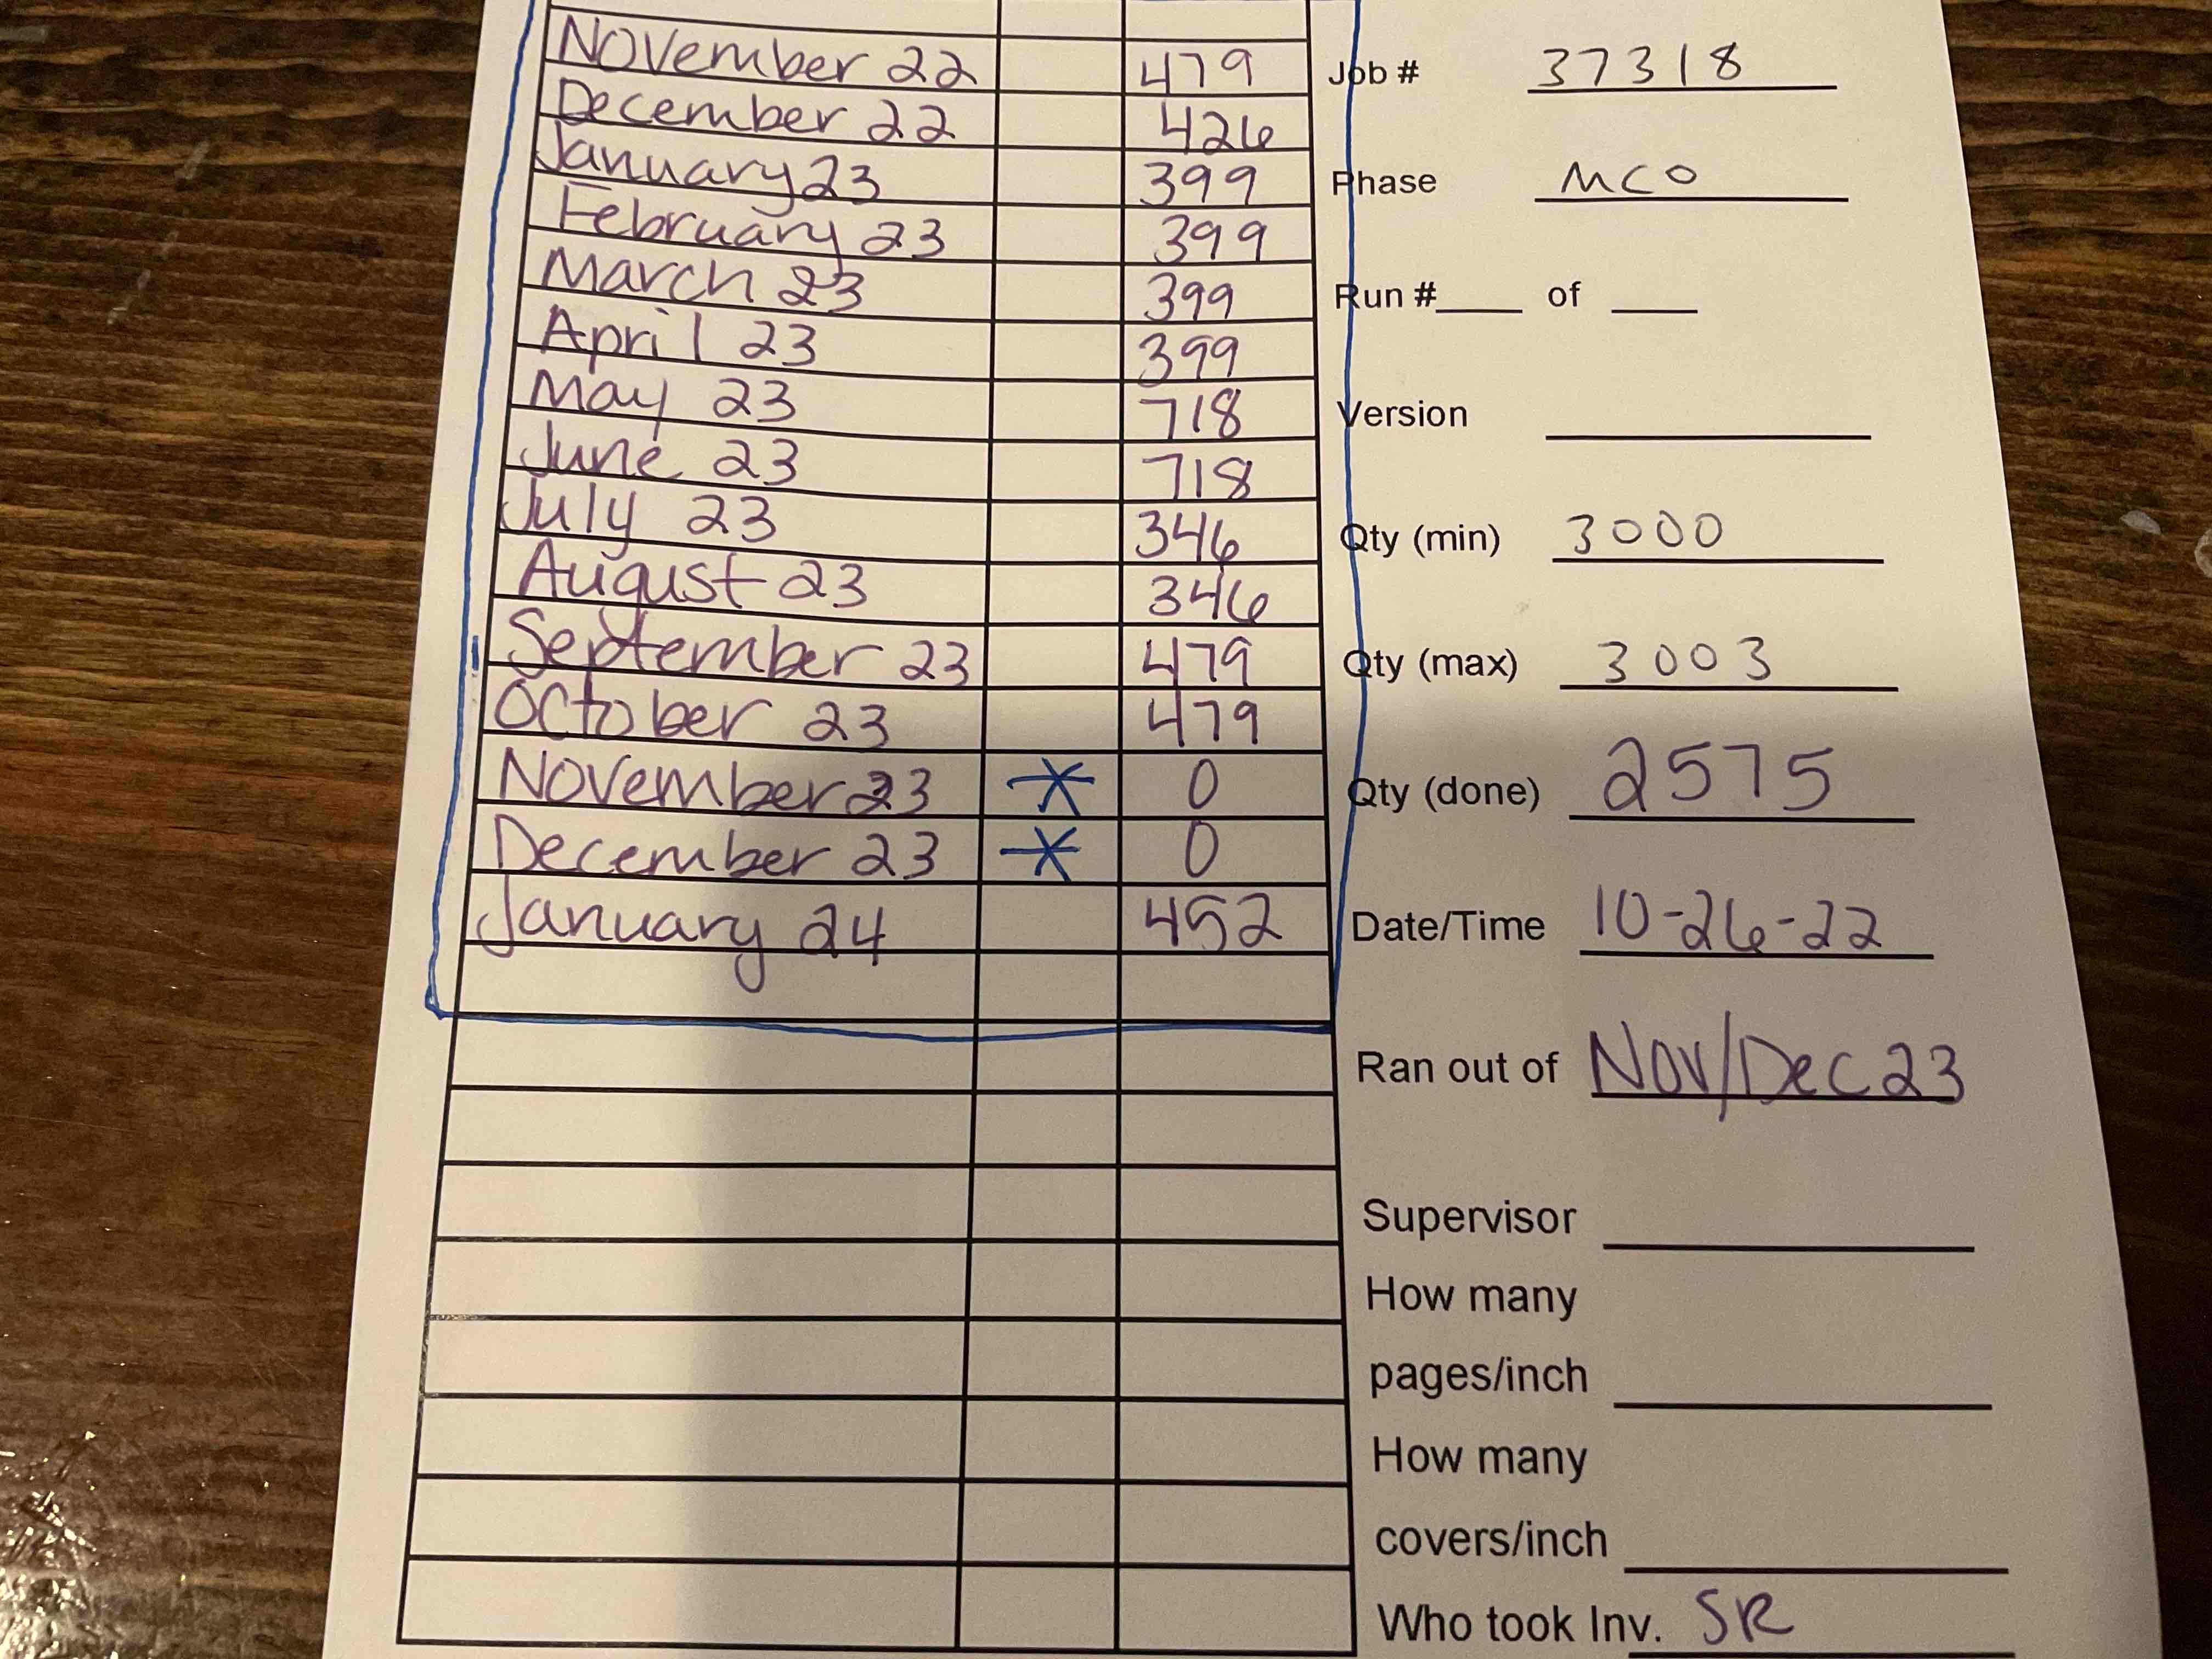 November 22 479
December 22 426
January 23 399
February 23 399
March 23 399
April 23 399
May 23 718
June 23 718
July 23 346
August 23 346
September 23 479
October 23 479
November 23 * 0
December 23 * 0
January 24 452
Job # 37318
Phase MCO
Run #____ of ____
Version
Qty (min) 3000
Qty (max) 3003
Qty (done) 2575
Date/Time 10-26-22
Ran out of Nov/Dec 23
Supervisor
How many
pages/inch
How many
covers/inch
Who took Inv. SR